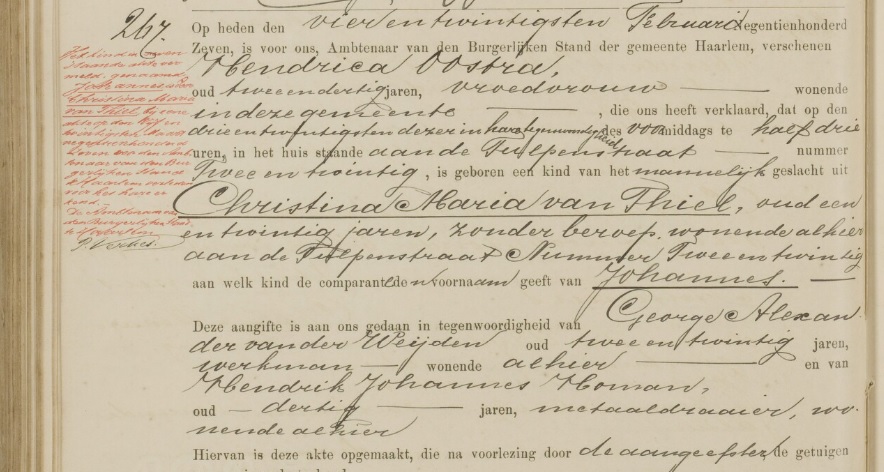 267.
Het kind in neven
staande akte ver
meld, genaamd
Johannes
Christina Maria
van Thiel
Haarlem
kind.
Op heden den vier en twintigsten Februari Negentienhonderd
Zeven, is voor ons, Ambtenaar van den Burgerlijken Stand der gemeente Haarlem, verschenen
Hendrica Oostra,
oud twee en dertig jaren, vroedvrouw wonende
in deze gemeente , die ons heeft verklaard, dat op den
drie en twintigsten dezer in hare tegenwoordigheid des voormiddags te half drie
uren, in het huis staande aan de Tulpenstraat nummer
Twee en twintig, is geboren een kind van het mannelijk geslacht uit
Christina Maria van Thiel, oud een
en twintig jaren, zonder beroep, wonende alhier
aan de Tulpenstraat Nummer Twee en twintig
aan welk kind de comparante den voornaam geeft van Johannes.
Deze aangifte is aan ons gedaan in tegenwoordigheid van George Alexan
der van der Weijden oud twee en twintig jaren,
werkman wonende alhier en van
Hendrik Johannes Homan,
oud dertig jaren, metaaldraaier, wo-
nende alhier
Hiervan is deze akte opgemaakt, die na voorlezing door de aangeefster, de getuigen